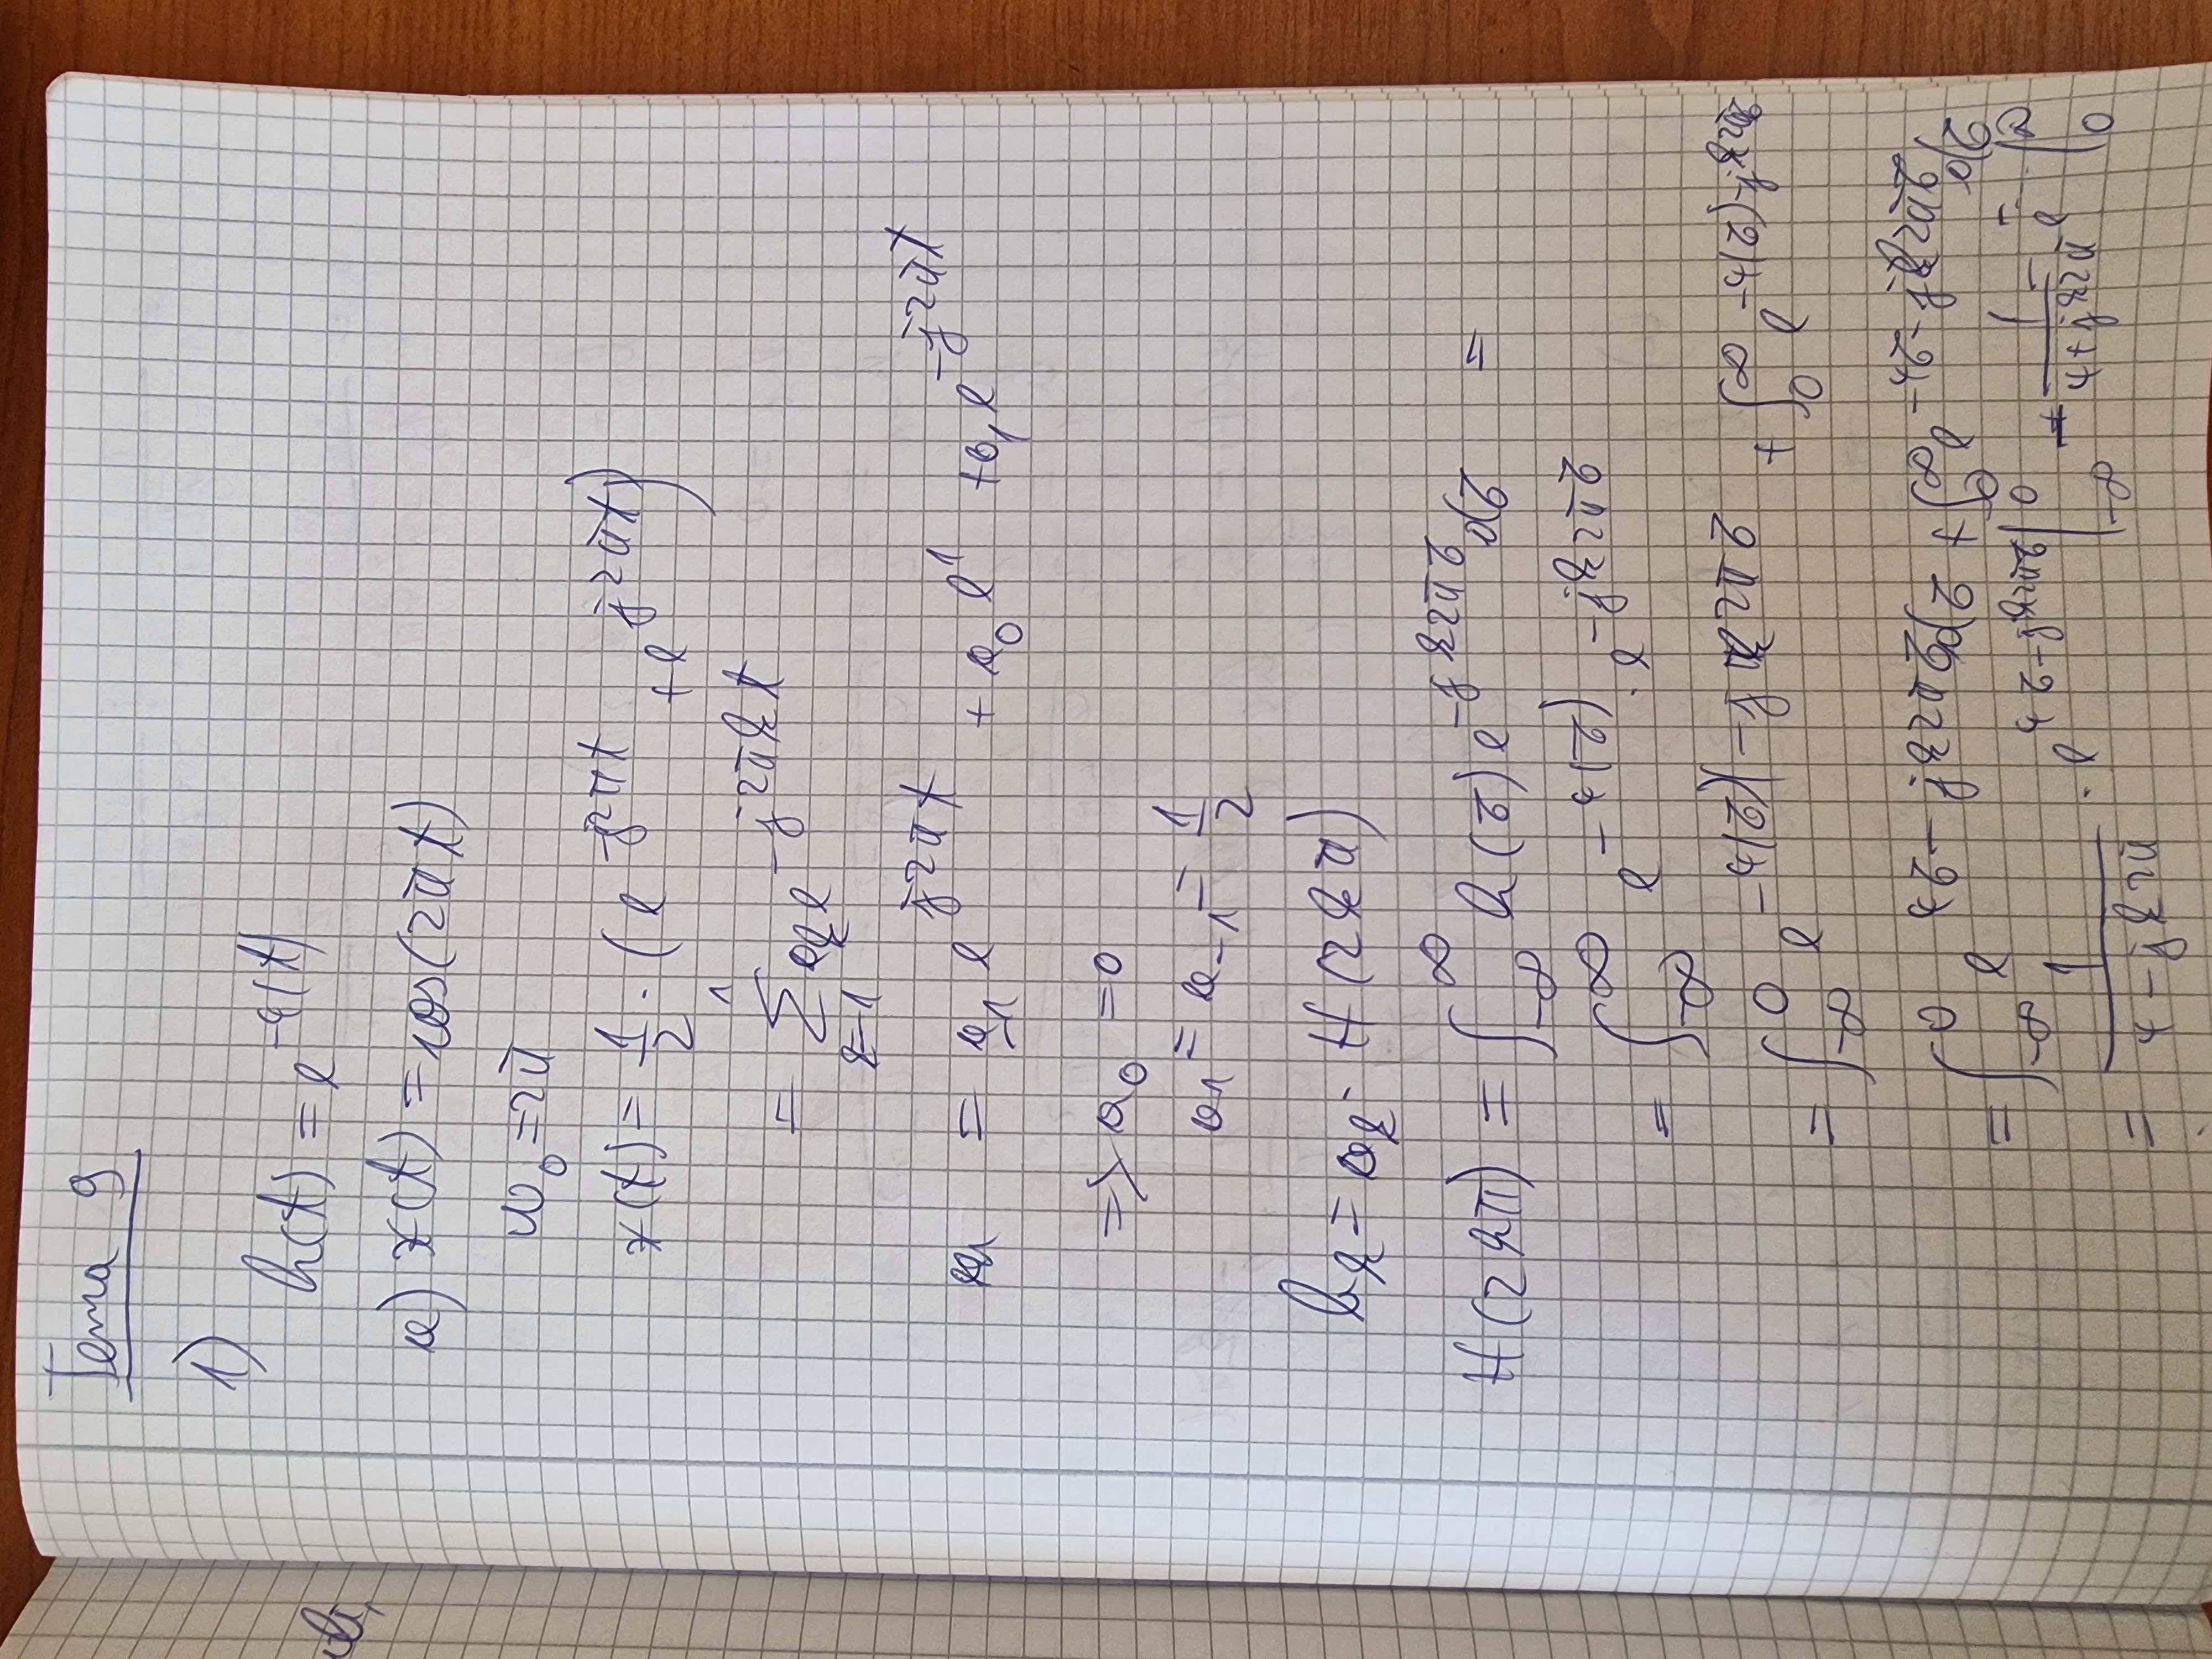 Tema 9
1)
h(t) = e^{-4|t|}
a) x(t) = cos(2πt)
w_0 = 2π
x(t) = 1/2 · (e^{-j2πt} + e^{j2πt})
= Σ_{k=-1}^{1} a_k e^{-j2πkt}
= a_{-1} e^{j2πt} + a_0 e^1 + a_1 e^{-j2πt}
=> a_0 = 0
a_1 = a_{-1} = 1/2
b_k = a_k · H(2kπ)
H(2kπ) = ∫_{-∞}^{∞} h(τ) e^{-jk2πτ} dτ =
= ∫_{-∞}^{∞} e^{-4|τ|} · e^{-jk2πτ}
= ∫_{-∞}^{0} e^{-4|τ| -jk2πτ} + ∫_{0}^{∞} e^{-4|τ| -jk2πτ}
= ∫_{-∞}^{0} e^{4τ -jk2πτ} dτ + ∫_{0}^{∞} e^{-4τ -jk2πτ} dτ
= 1/(4-jk2π) · e^{4τ -jk2πτ} |_{-∞}^{0} + 1/(4+jk2π) e^{-} |_{0}^{∞}